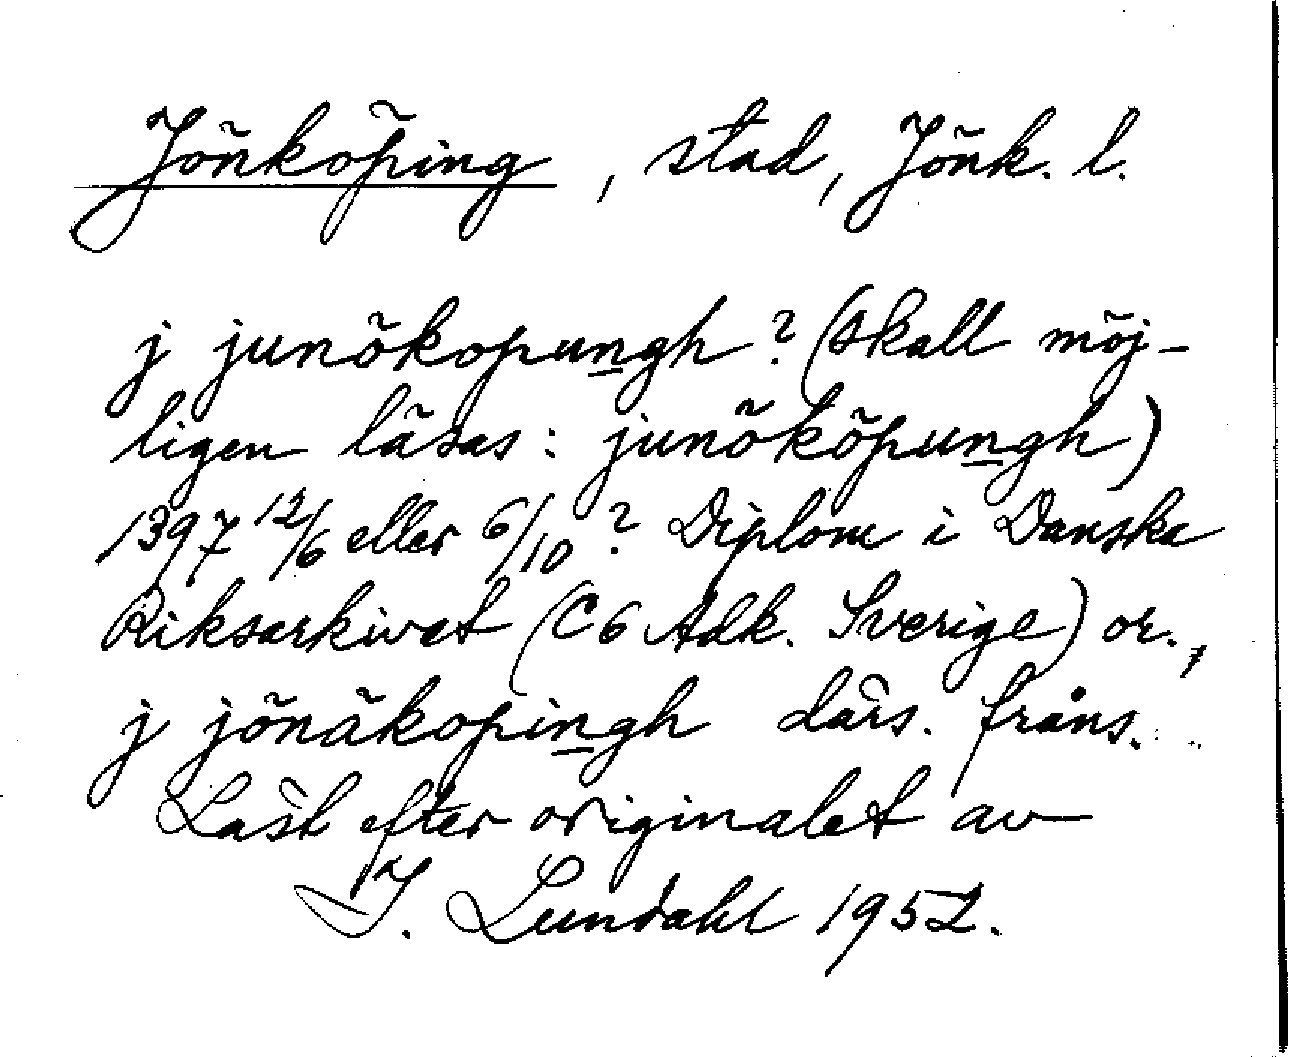 Jönköping, stad, Jönk. l.
j junökopungh? (skall möj-
ligen läsas: junököpungh)
1397 12/6 eller 6/10? Diplom i Danska
Riksarkivet (C6 Adk. Sverige) or.,
j jönäkopingh därs. fråns.
Läst efter originalet av
I. Lundahl 1952.